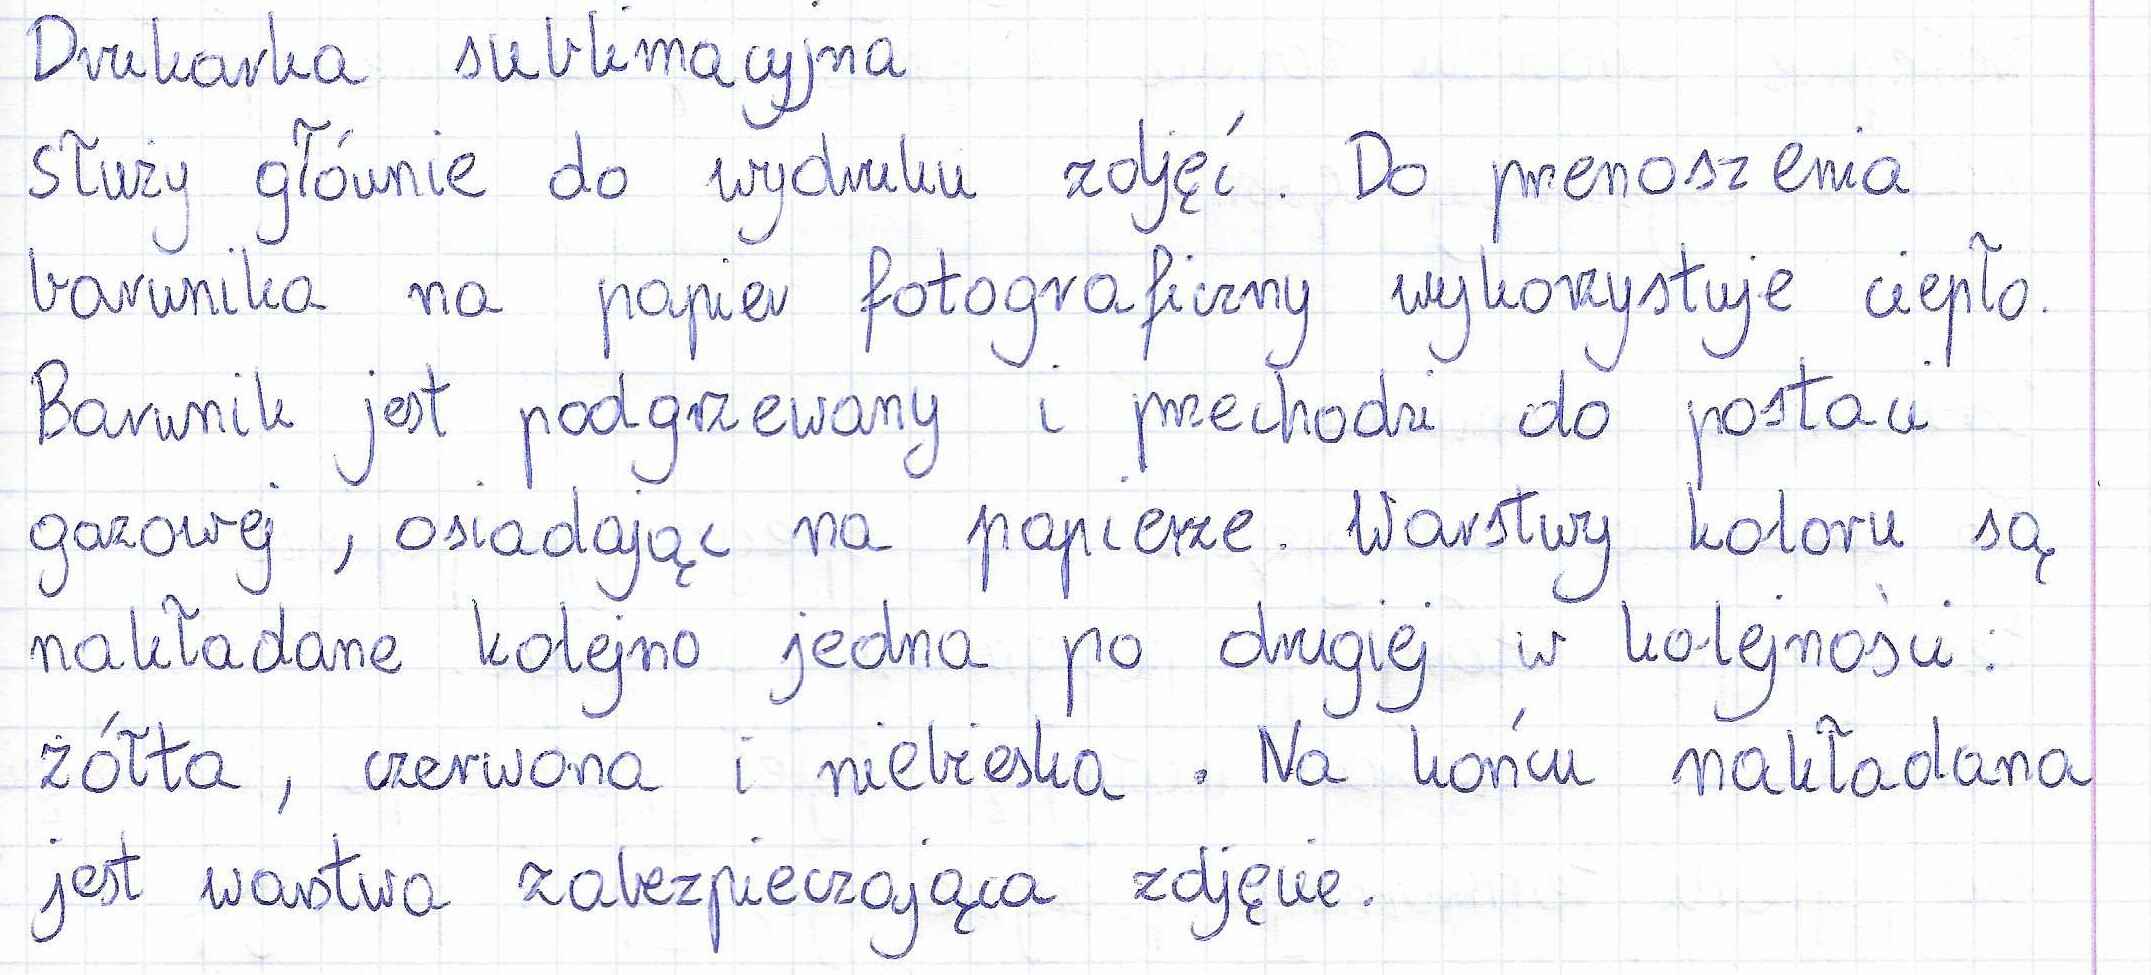 Drukarka sublimacyjna
służy głównie do wydruku zdjęć. Do przenoszenia
barwnika na papier fotograficzny wykorzystuje ciepło.
Barwnik jest podgrzewany i przechodzi do postaci
gazowej, osiadając na papierze. Warstwy koloru są
nakładane kolejno jedna po drugiej w kolejności:
żółta, czerwona i niebieska. Na końcu nakładana
jest warstwa zabezpieczająca zdjęcie.